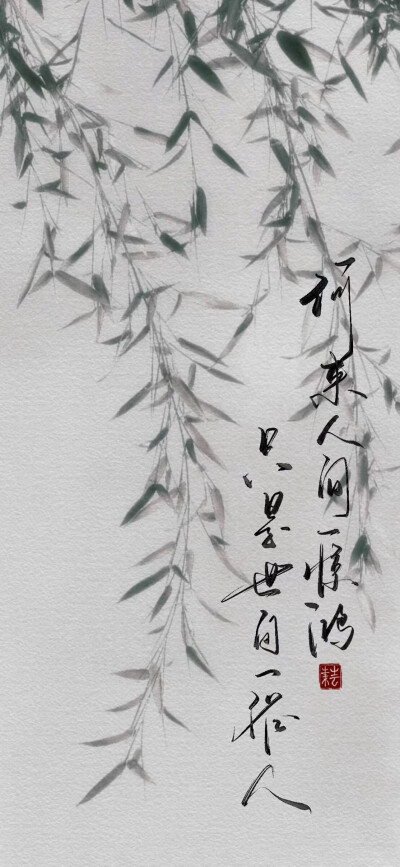 何来人间一惊鸿
只是世间一俗人